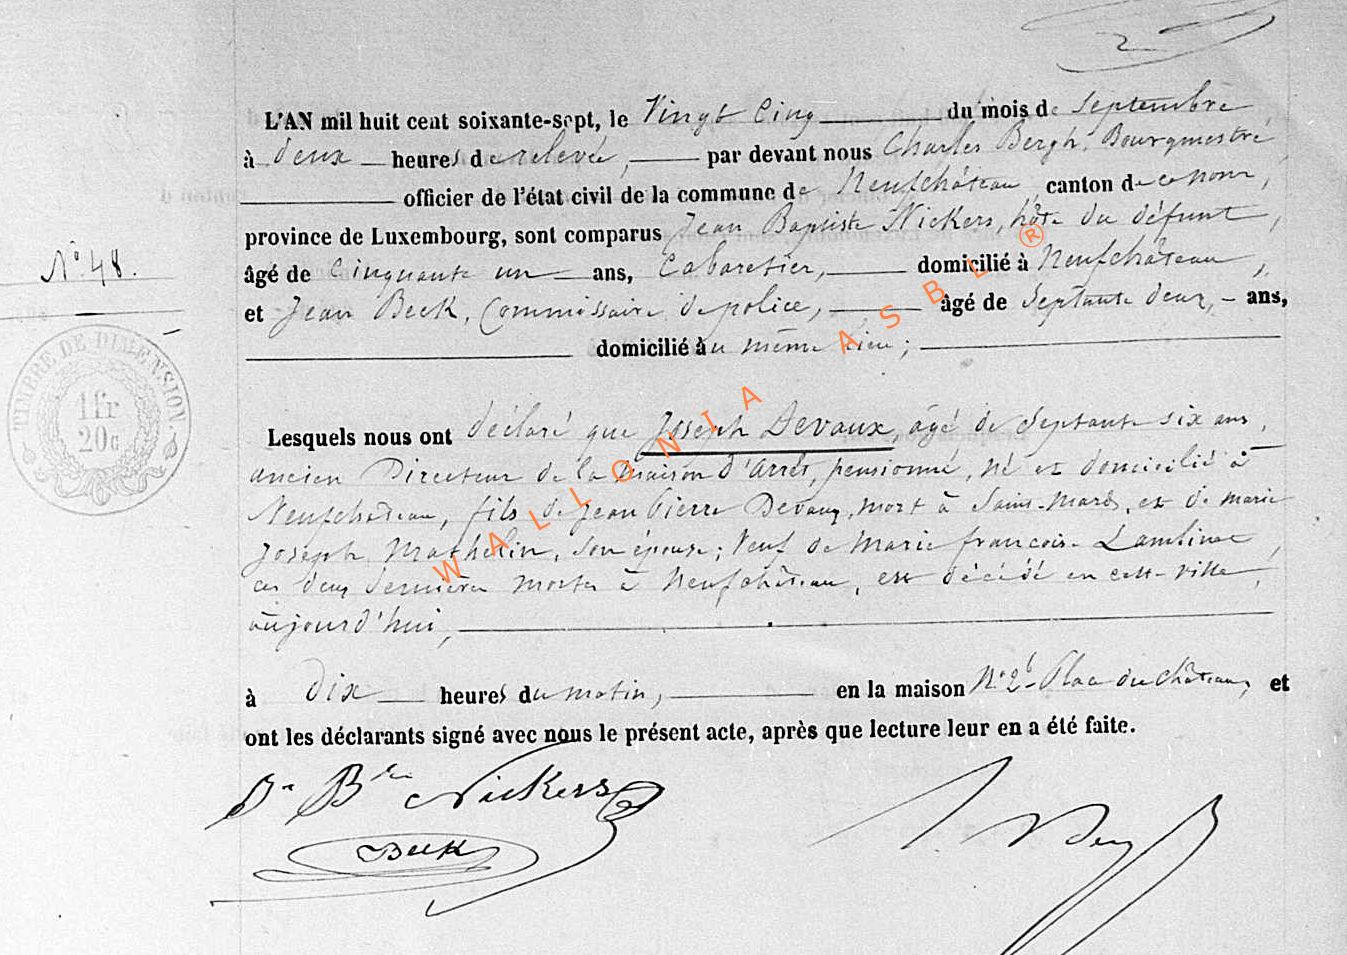 L'AN mil huit cent soixante-sept, le Vingt Cinq du mois de Septembre
à deux heures de relevée, par devant nous Charles Bergh, Bourgmestre,
officier de l'état civil de la commune de Neufchâteau, canton de ce nom,
province de Luxembourg, sont comparus Jean Baptiste Nickers, hôte du défunt,
N° 48.
âgé de Cinquante un ans, Cabaretier, domicilié à Neufchâteau,
et Jean Beck, Commissaire de police, âgé de Septante deux, ans,
domicilié au même lieu;
TIMBRE DE DIMENSION.
1fr
20c
Lesquels nous ont déclaré que Joseph Devaux, âgé de Septante six ans,
ancien Directeur de la maison d'arrêt, pensionné, né et domicilié à
Neufchâteau, fils de Jean Pierre Devaux, mort à Saint-Mard, et de Marie
Joseph Mathelin, son épouse; Veuf de Marie françoise
ces deux dernières mortes à Neufchâteau, est décédé en cette ville,
aujourd'hui,
à dix heures du matin, en la maison N° 2 Place du Château, et
ont les déclarants signé avec nous le présent acte, après que lecture leur en a été faite.
Jn Bte Nickers
Beck
WALLONIA ASBL ®